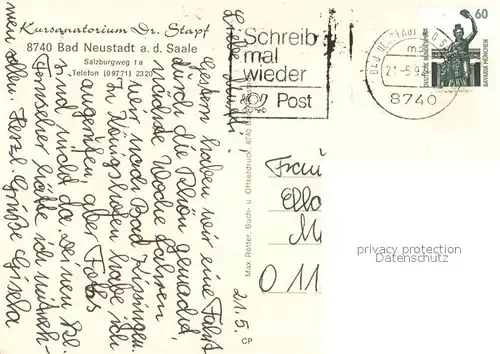 Kursanatorium Dr. Stapf
8740 Bad Neustadt a. d. Saale
Salzburgweg 1a
Telefon (09771) 2320
Schreib
mal
wieder
Post
8740
60
DEUTSCHE BUNDESPOST
BAVARIA MÜNCHEN
21.5.
Gestern haben wir eine Fahrt
durch die Rhön gemacht,
nächste Woche fahren
wir nach Bad Kissingen.
In Königshofen habe ich
angerufen, aber
sind nicht da.
Fernseher hätte ich
Herzl. Grüße Gisela
Max Rötter, Buch- u. Offsetdruck, 8740 Bad
CP
Frau
O 11
privacy protection
Datenschutz